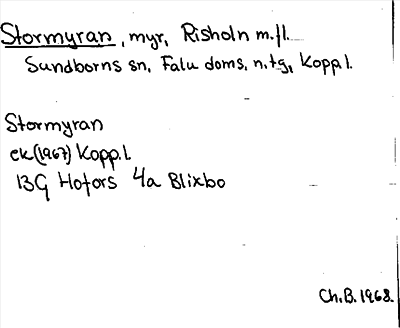 Stormyran, myr, Risholn m.fl.
Sundborns sn, Falu doms. n.tg, Kopp.l.
Stormyran
ek(1967) Kopp.l.
13G Hofors 4a Blixbo
Ch.B. 1968.